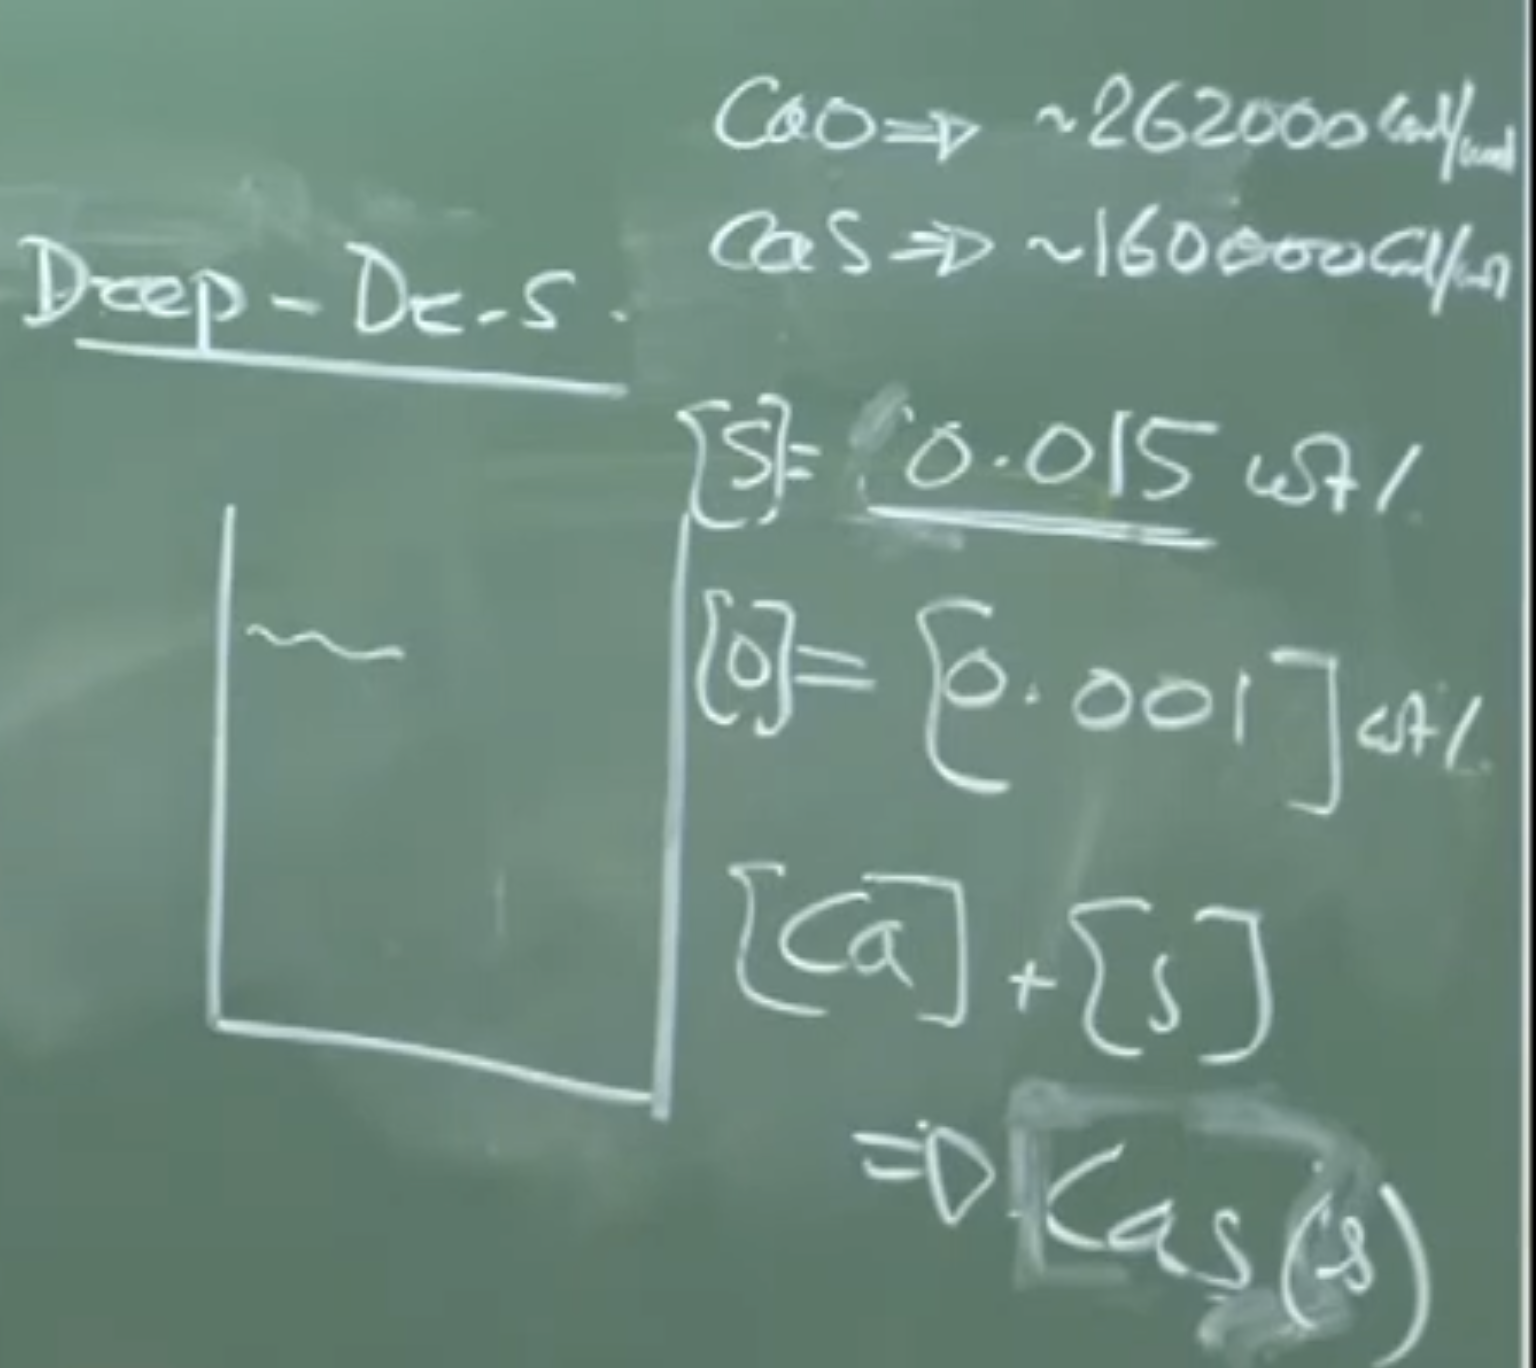 CaO ⇒ ~262000 Cal/mol
CaS ⇒ ~160000 Cal/mol
Deep-De-S.
[S] = 0.015 wt%
[O] = [0.001] wt%
[Ca] + [S]
⇒ CaS(s)